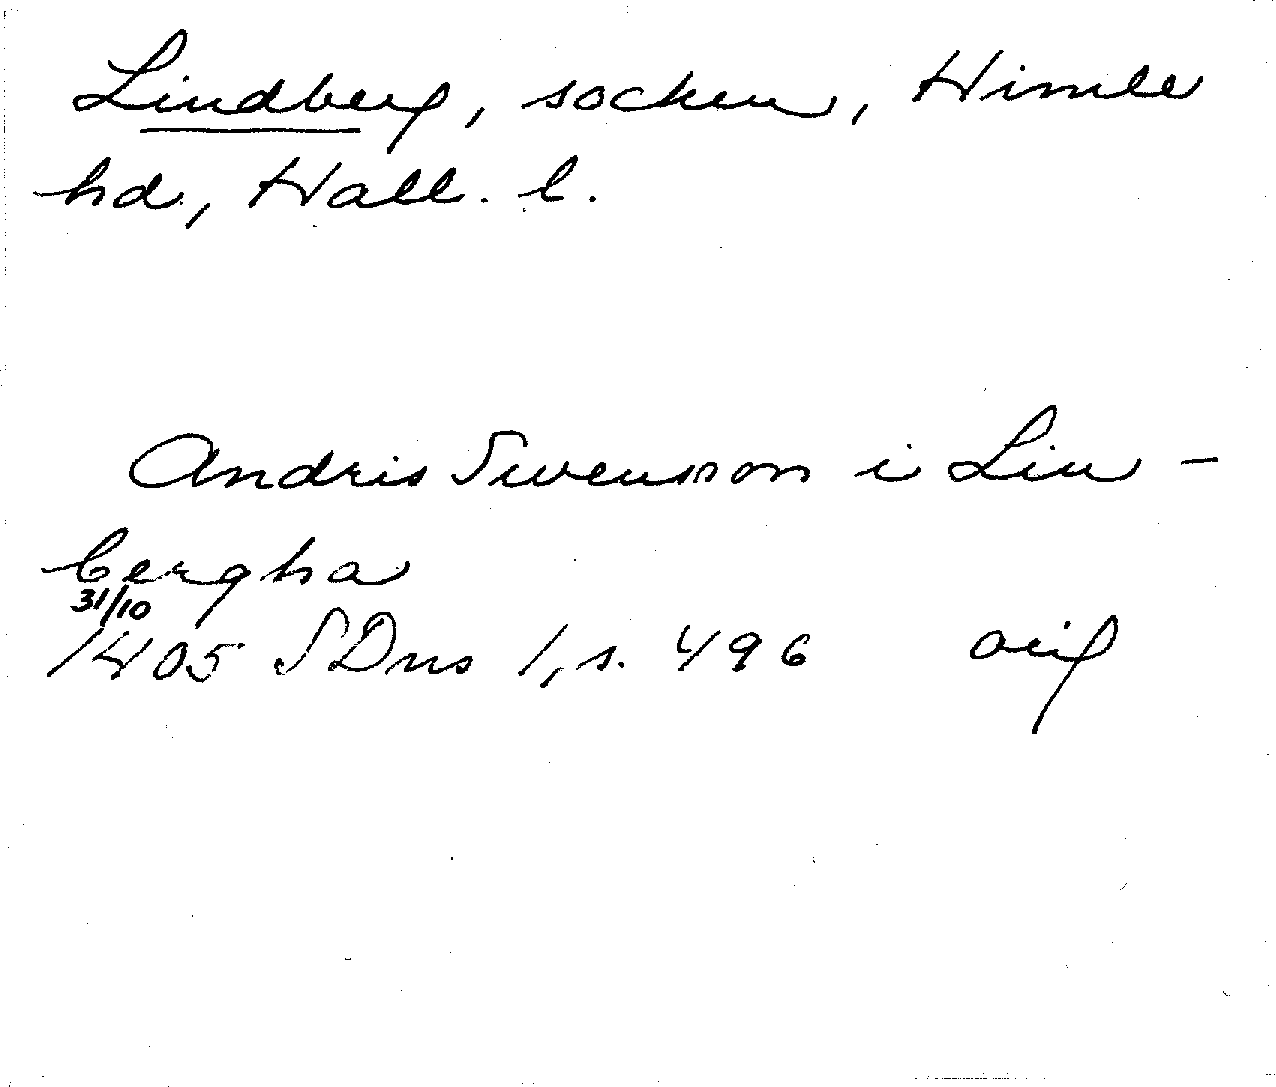 Lindberg, socken, Himle
hd, Hall. l.
Andris Swenson i Lin-
bergha
31/10
1405 SDns 1, s. 496 orig